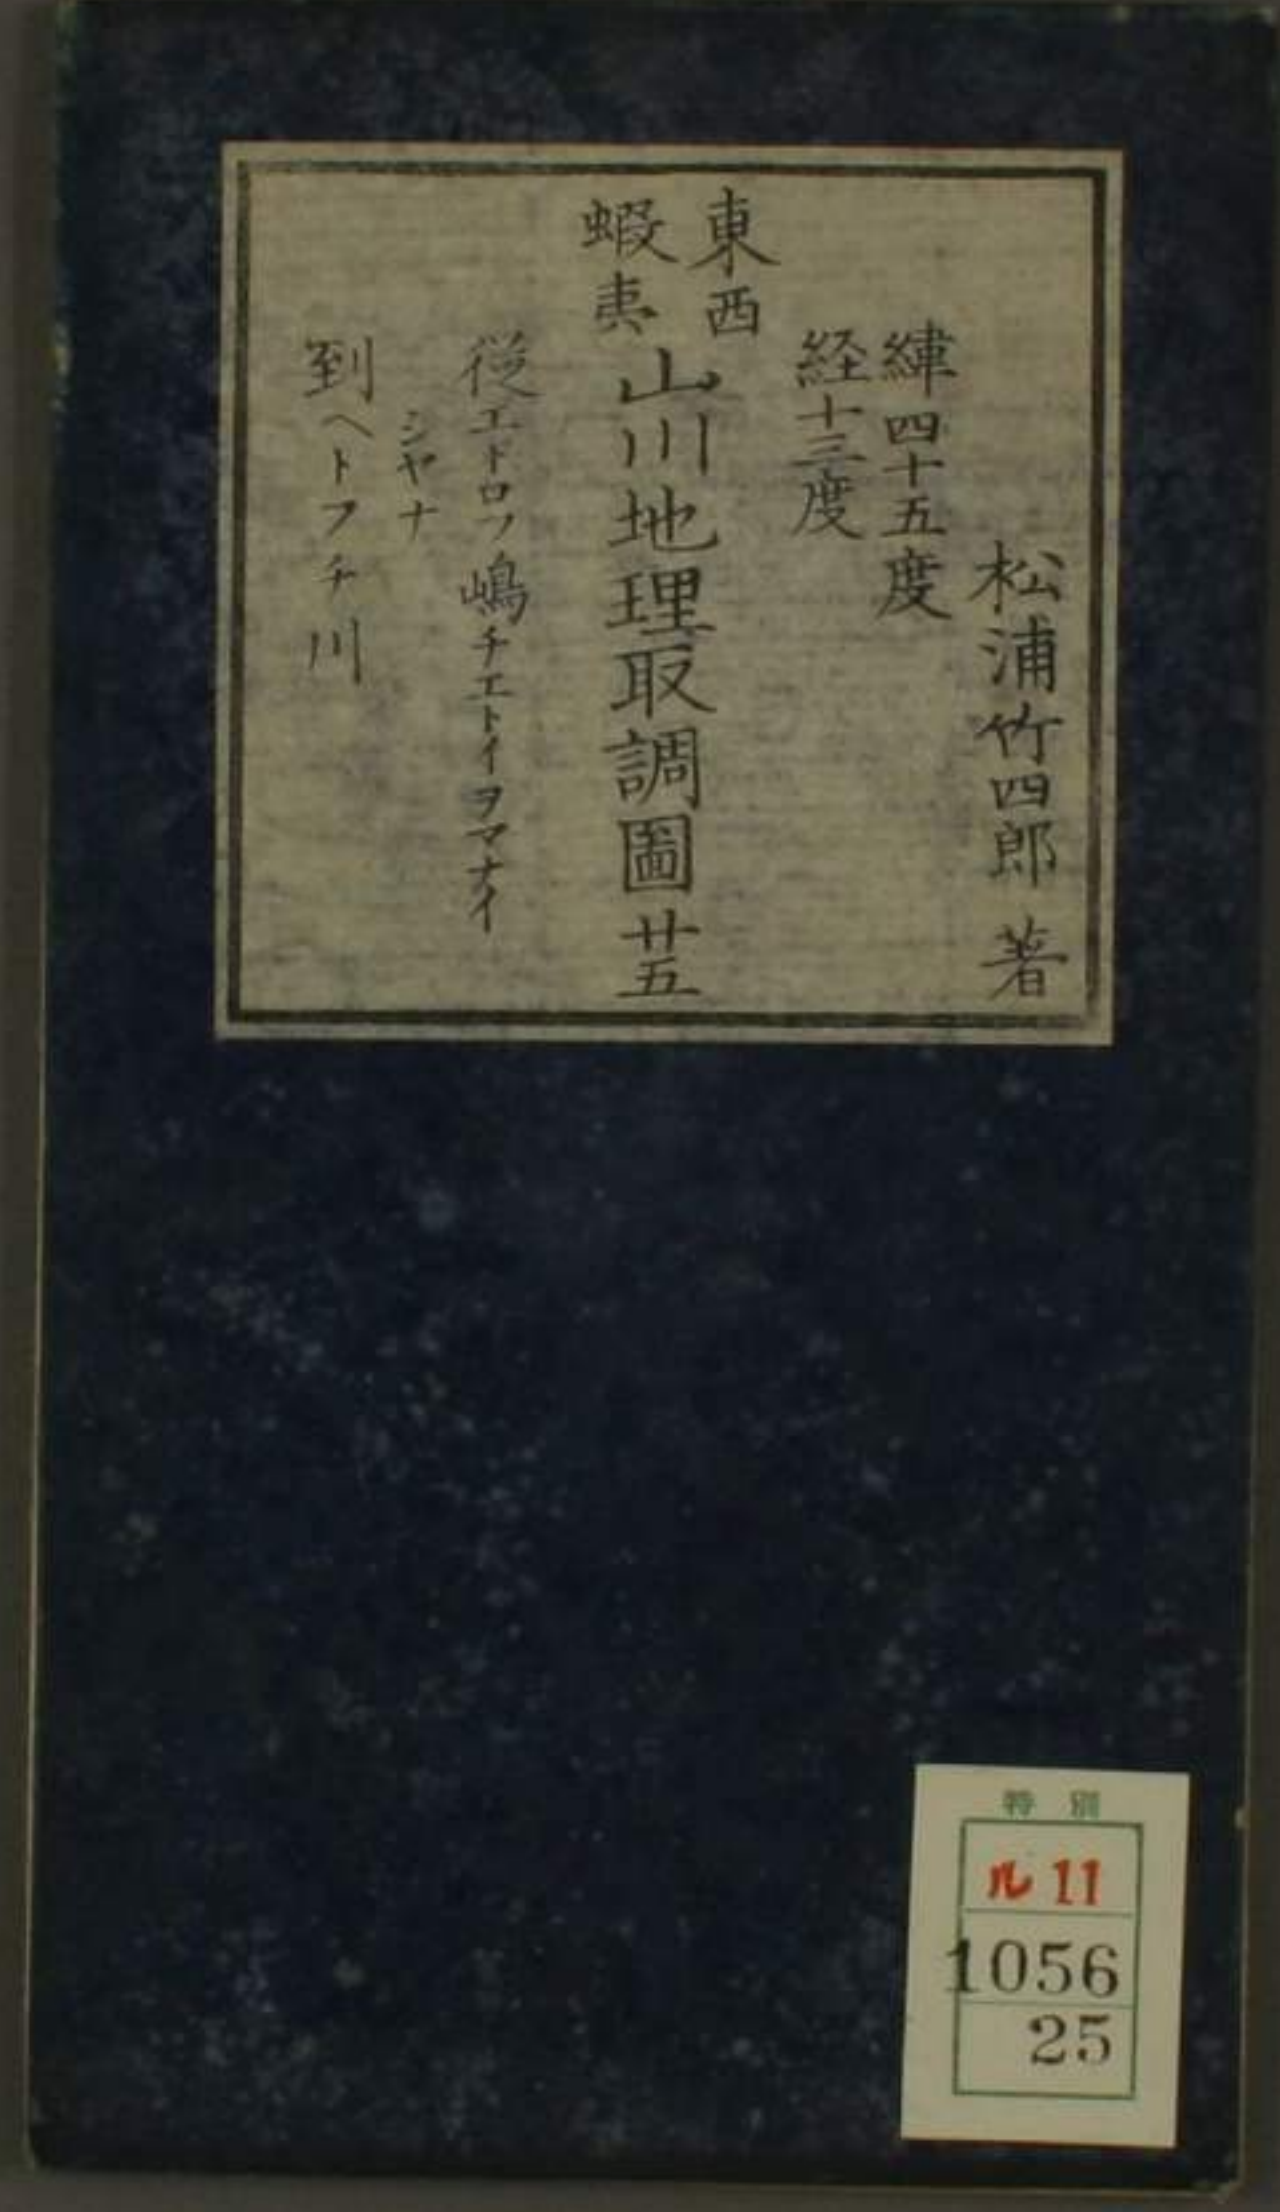 松浦竹四郎 著
緯四十五度
経十三度
東西
蝦夷
山川地理取調圖 廿五
従エトロフ嶋チエトイヲマナイ
シヤナ
到ヘトフチ川
特別
ル11
1056
25